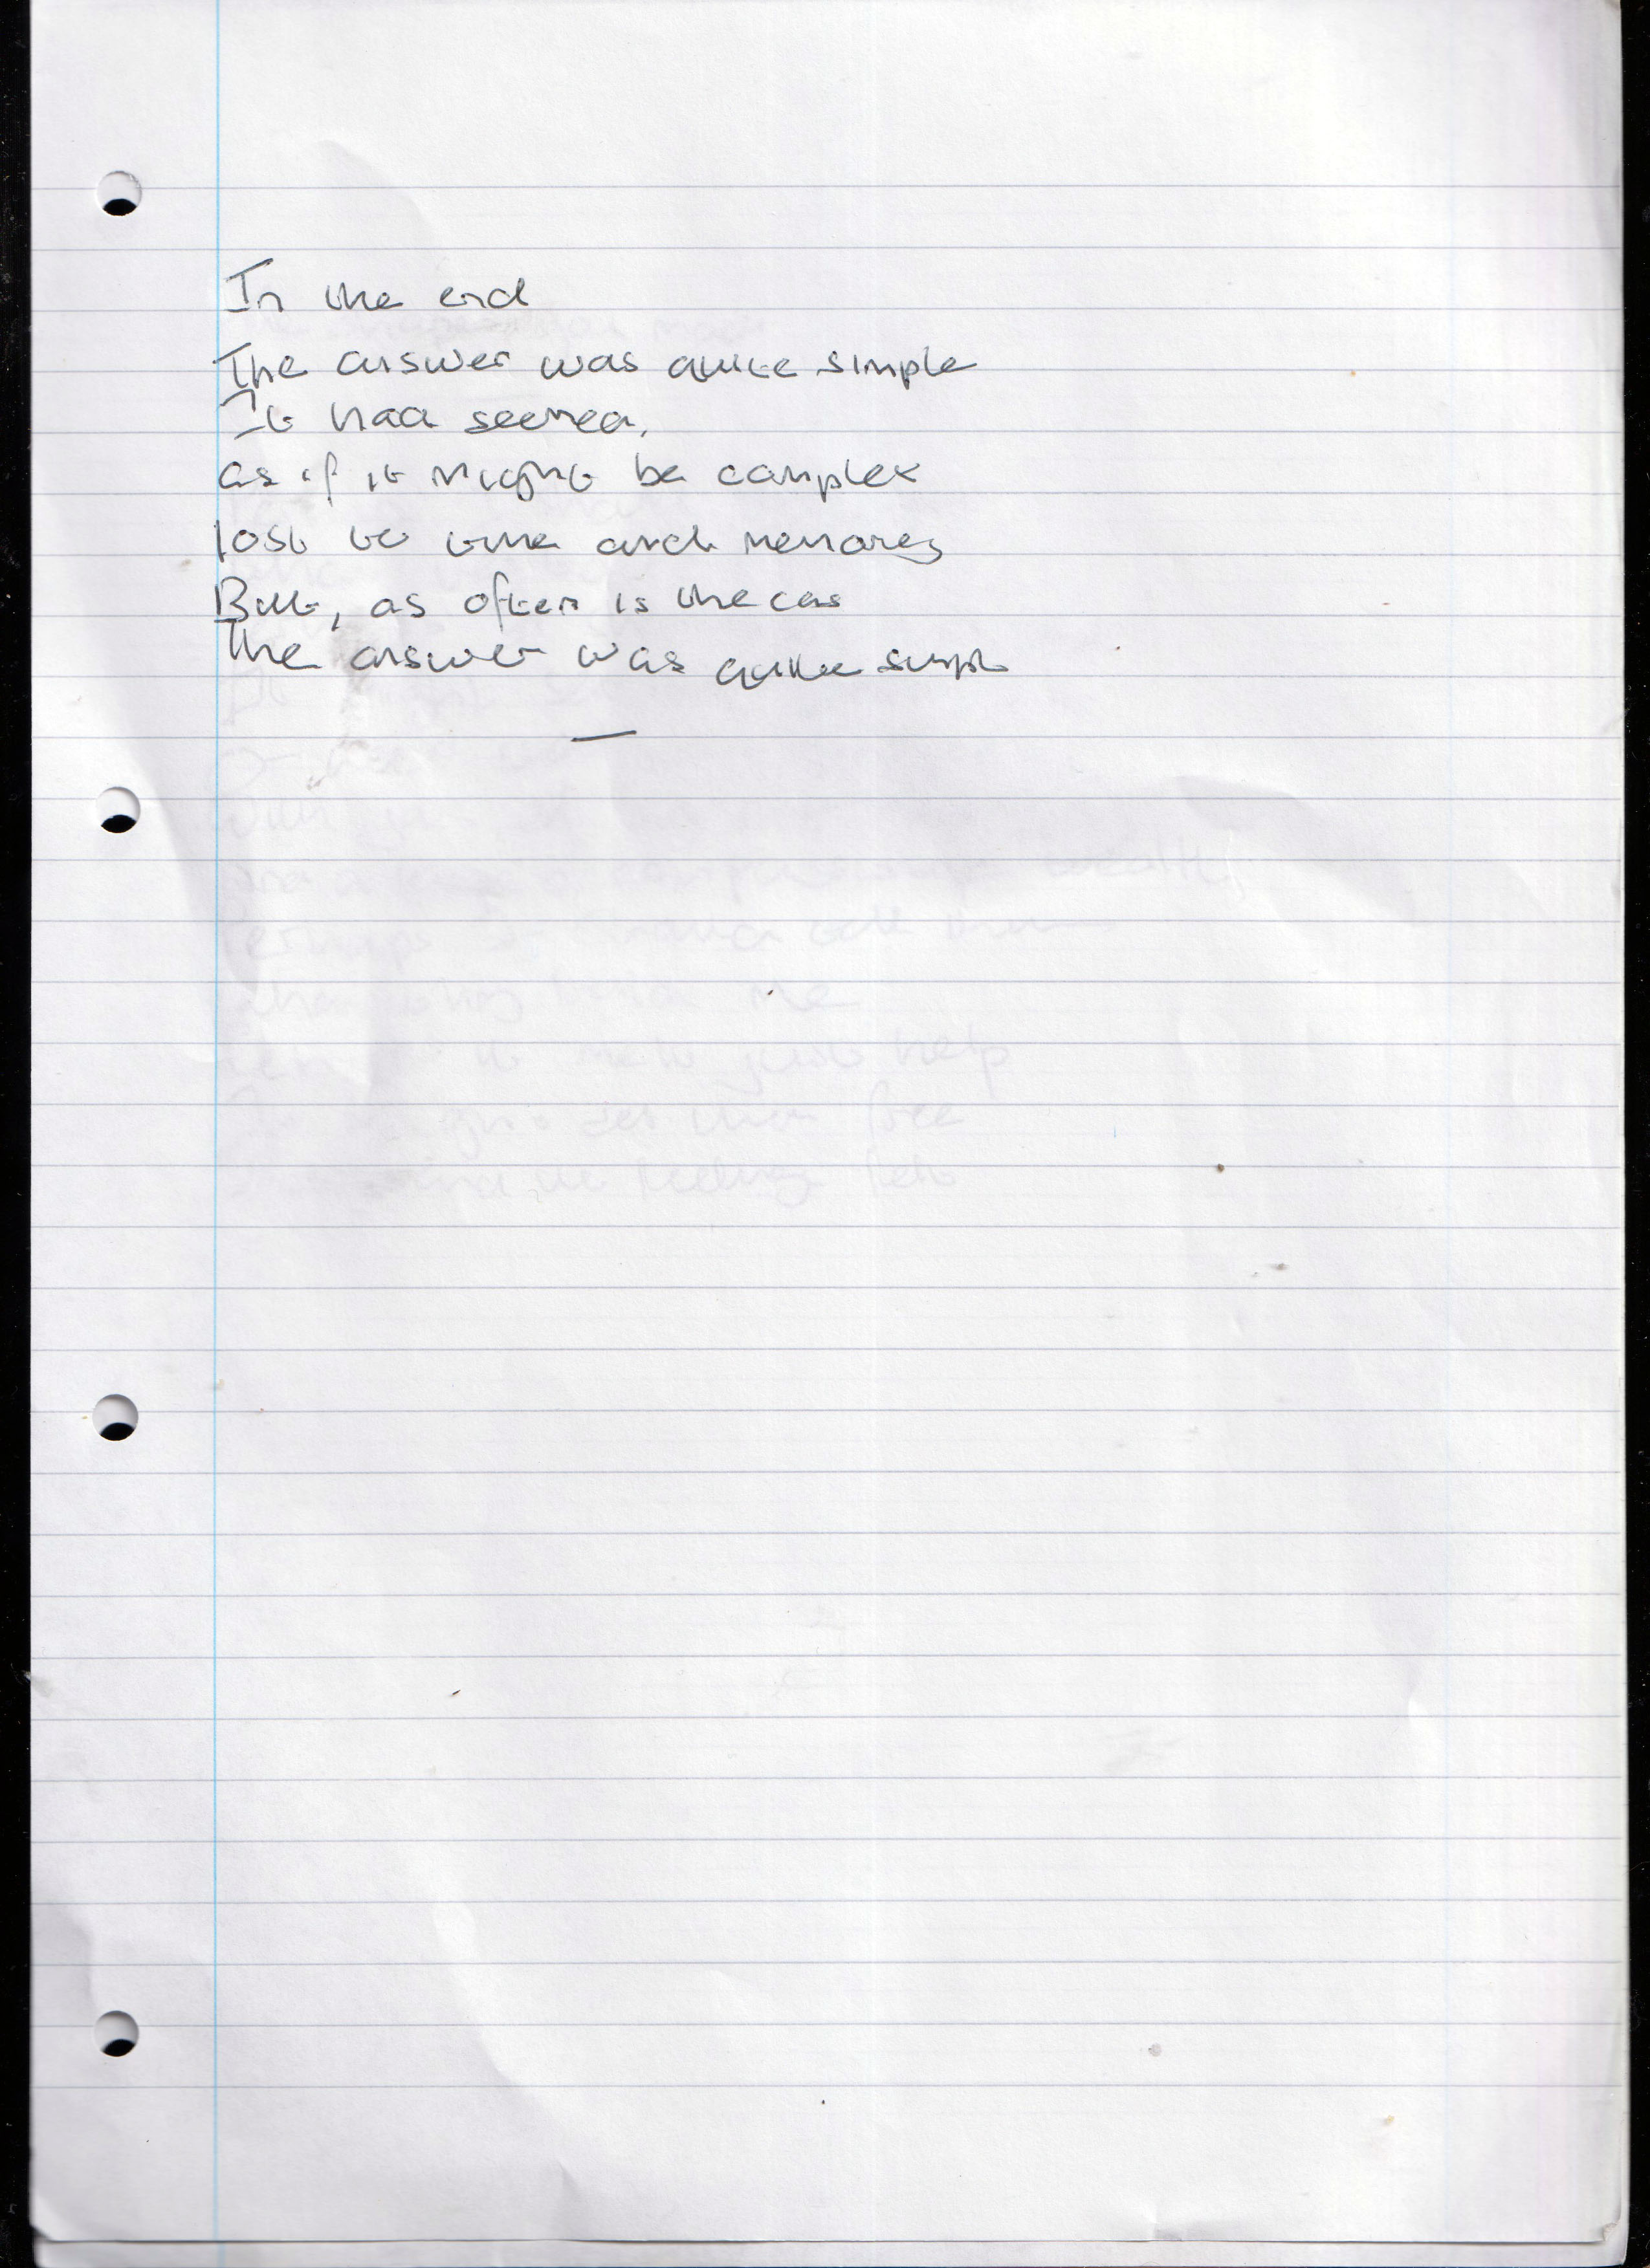 In the end
The answer was quite simple
It had seemed,
as if it might be complex
lost to time and memory
But, as often is the case
The answer was quite simple
—